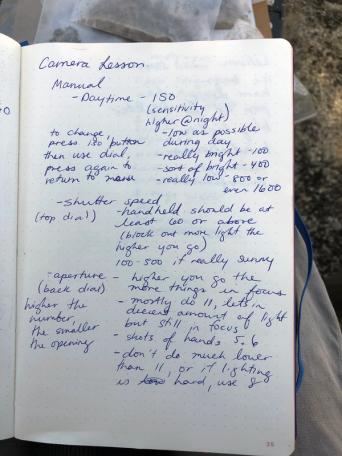 Camera Lesson
Manual
- Daytime - ISO
(sensitivity
higher @ night)
to change,
press iso button
then use dial,
press again to
return to
- low as possible
during day
- really bright - 100
- sort of bright - 400
- really low - 800 or
even 1600
- shutter speed
(top dial)
- handheld should be at
least 60 or above
(block out more light the
higher you go)
100-500 if really sunny
- aperture
(back dial)
higher the
number,
the smaller
the opening
- higher you go the
more things in focus
- mostly do 11, lets in
decent amount of light
but still in focus
- shots of hands 5.6
- don't do much lower
than 11, or if lighting
is hard, use 8
35